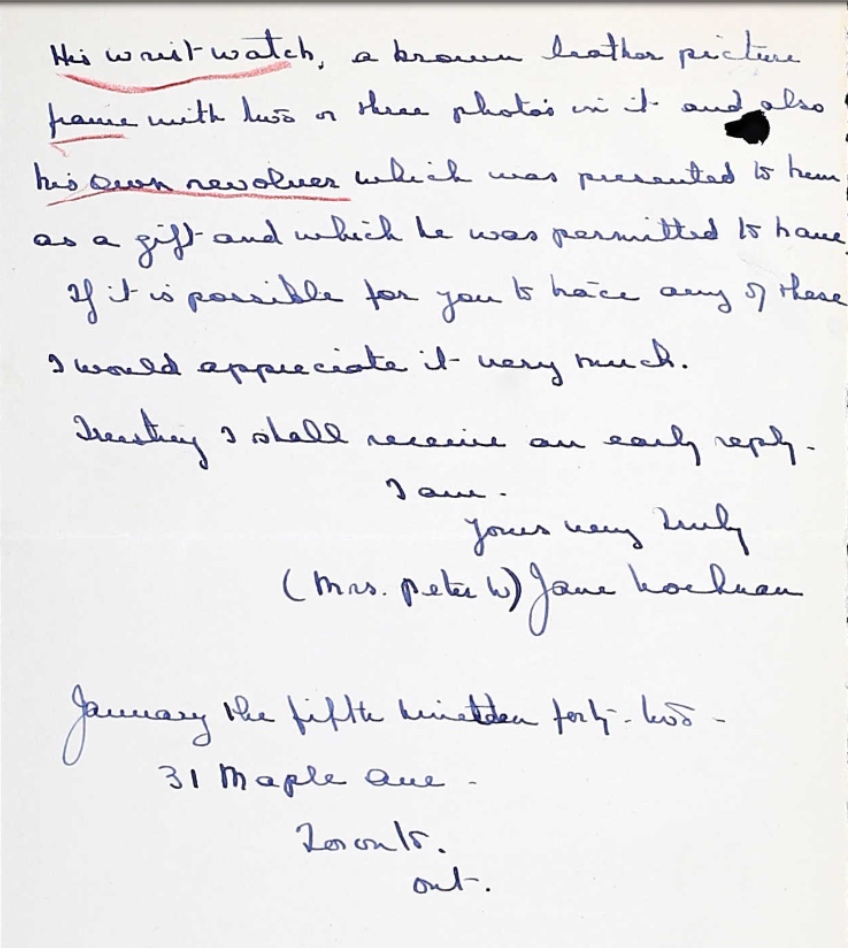 His wrist-watch, a brown leather picture
frame with two or three photo's in it and also
his own revolver which was presented to him
as a gift and which he was permitted to have.
If it is possible for you to trace any of these
I would appreciate it very much.
Trusting I shall receive an early reply.
I am.
Yours very truly
(Mrs. Peter W) Jane
January the fifth nineteen forty-two -
31 Maple Ave -
Toronto.
Ont.